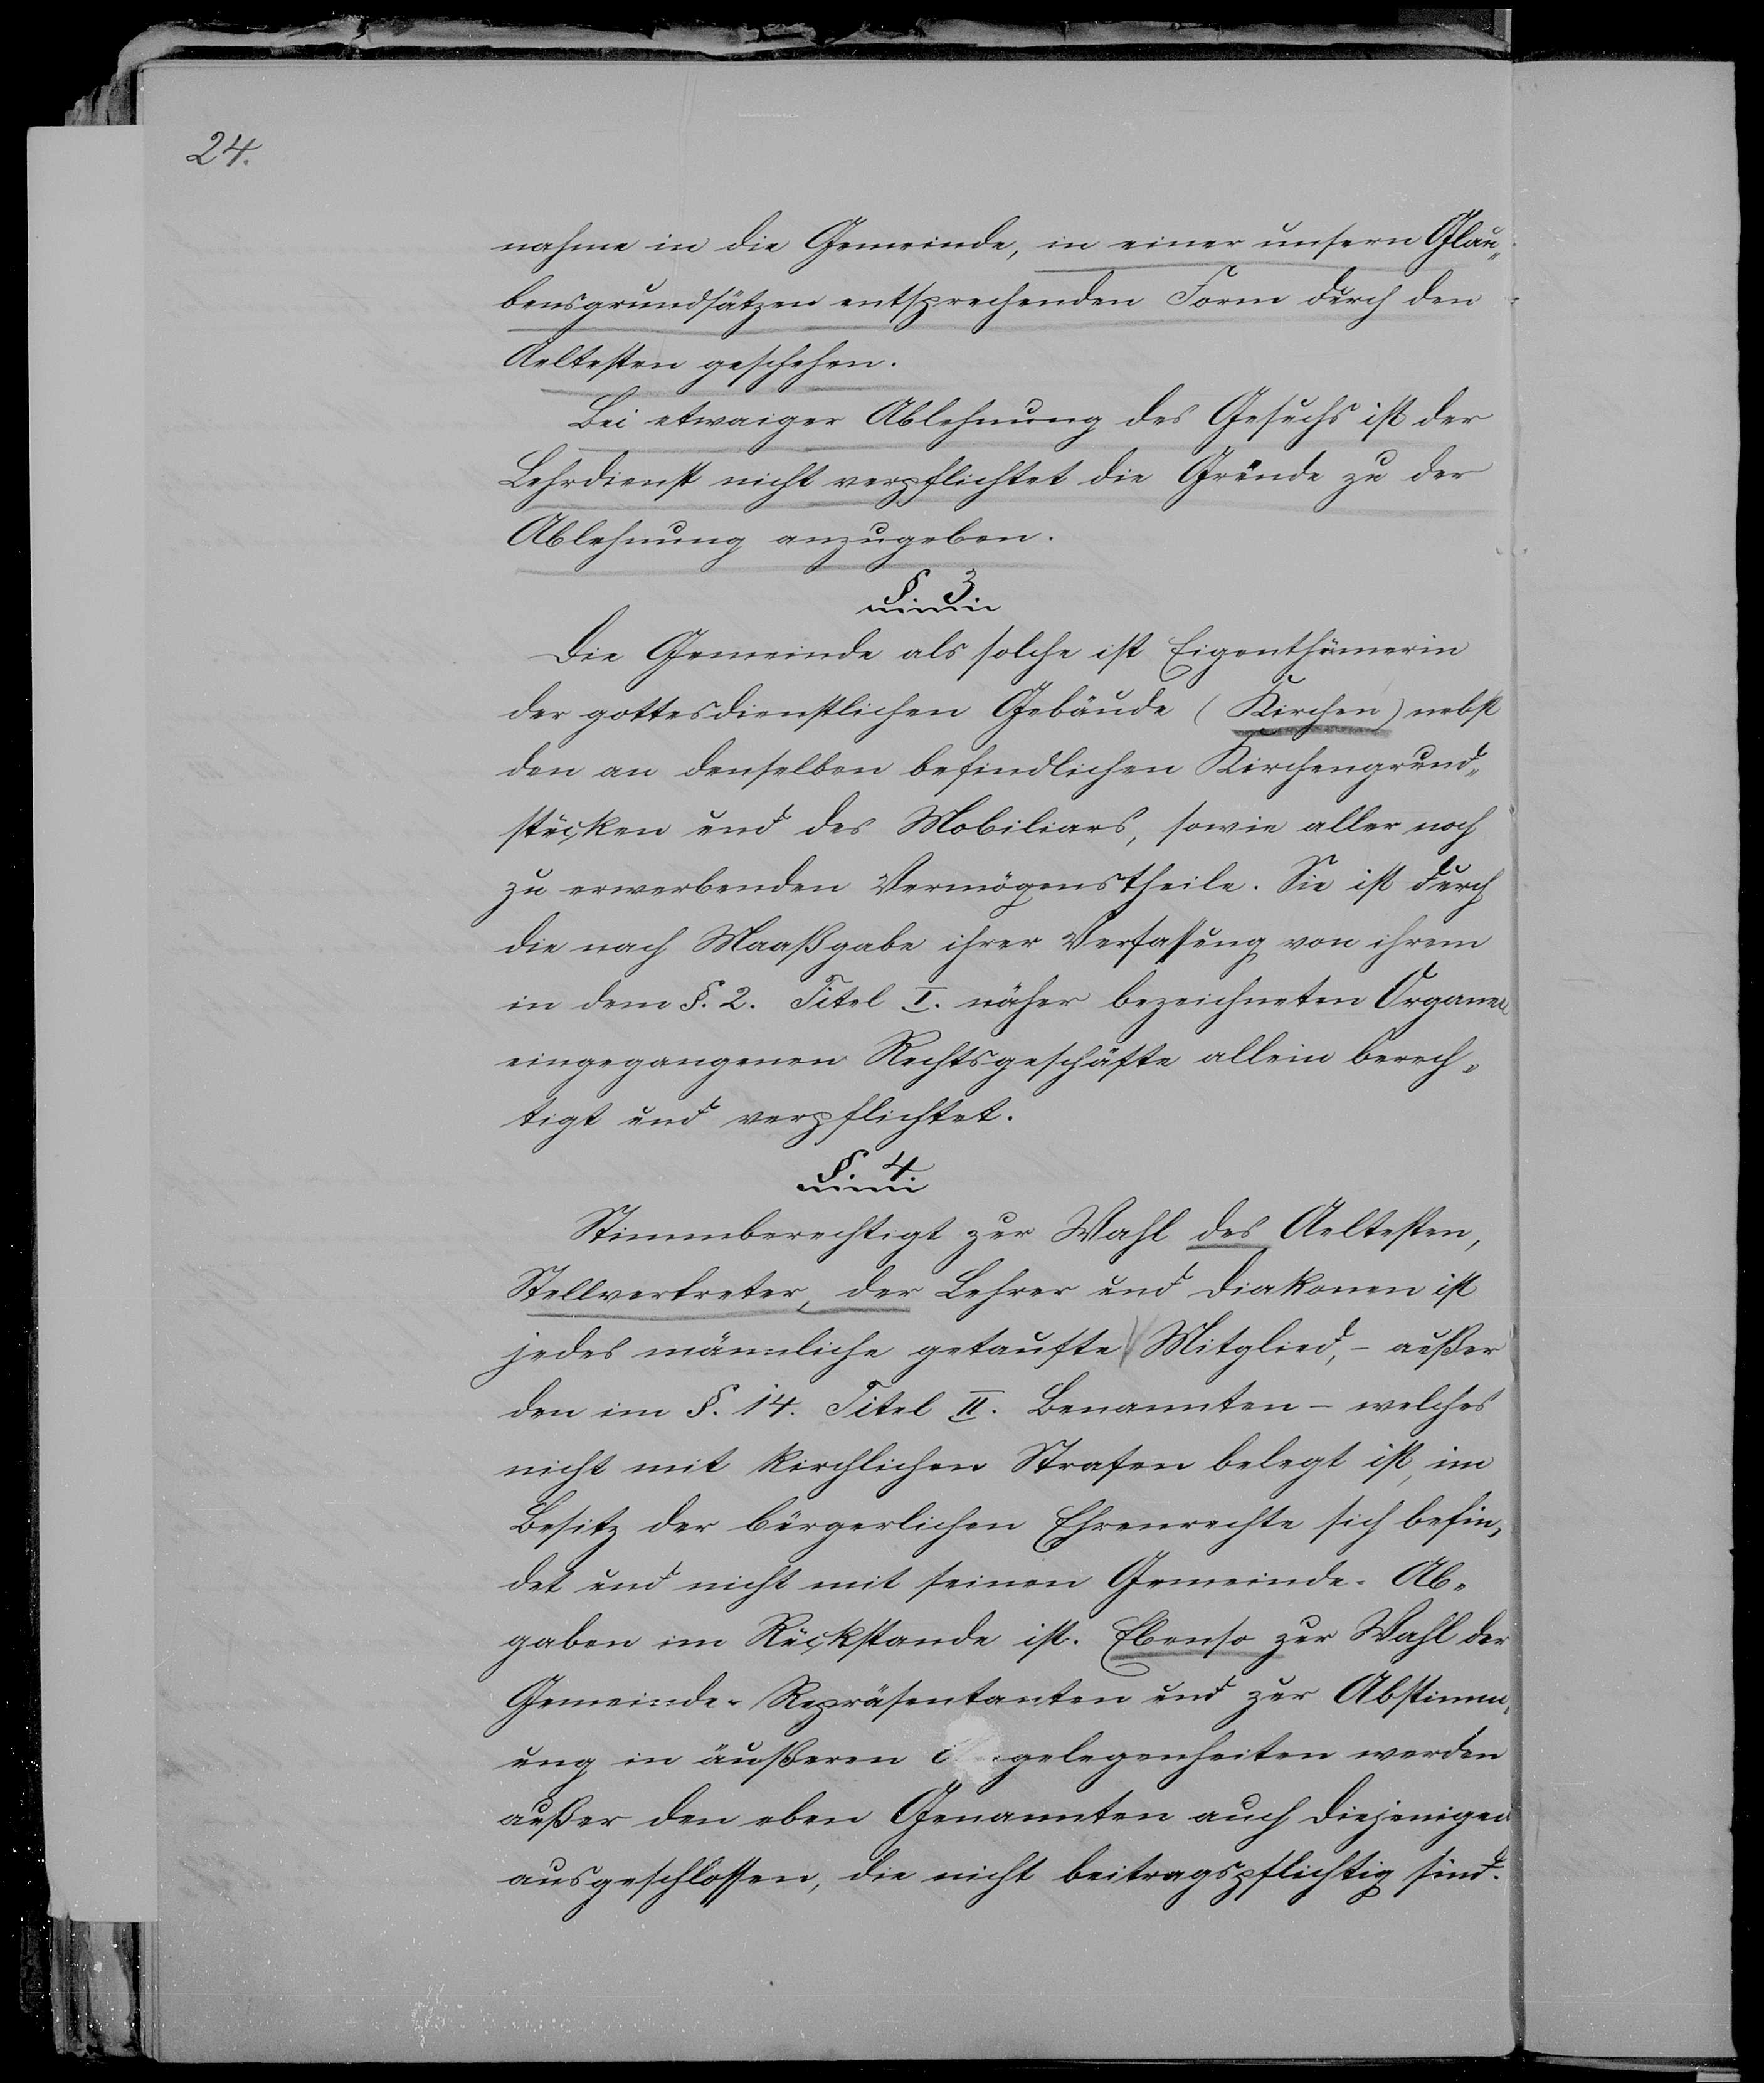 24.
nahme in die Gemeinde, in einer unsern Glau„
bensgrundsätzen entsprechenden Form durch den
Aeltesten geschehen.
Bei etwaiger Ablehnung des Gesuchs ist der
Lehrdienst nicht verpflichtet die Gründe zu der
Ablehnung anzugeben.
§. 3
Die Gemeinde als solche ist Eigenthümerin
der gottesdienstlichen Gebäude (Kirchen) nebst
den an denselben befindlichen Kirchengrund„
stücken und des Mobiliars, sowie aller noch
zu erwerbenden Vermögenstheile. Sie ist durch
die nach Maaßgabe ihrer Verfassung von ihrem
in dem §. 2. Titel I. näher bezeichneten Organen
eingegangenen Rechtsgeschäfte allein berech„
tigt und verpflichtet.
§. 4.
Stimmberechtigt zur Wahl des Aeltesten,
Stellvertreter, der Lehrer und Diakonen ist
jedes männliche getaufte Mitglied, – außer
den im §. 14. Titel II. Benannten – welches
nicht mit kirchlichen Strafen belegt ist, im
Besitz der bürgerlichen Ehrenrechte sich befin„
det und nicht mit seinen Gemeinde-Ab„
gaben im Rückstande ist. Ebenso zur Wahl der
Gemeinde-Repräsentanten und zur Abstimm„
ung in äußeren gelegenheiten werden
außer den eben Genannten auch diejenigen
ausgeschlossen, die nicht beitragspflichtig sind.